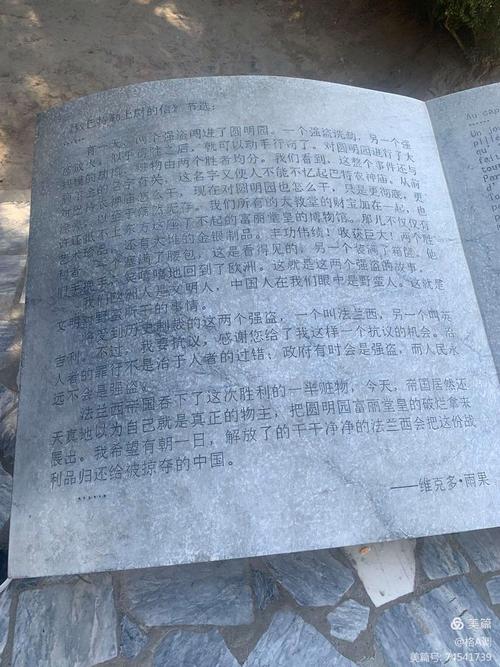 《致巴特勒上尉的信》节选：
……
有一天，两个强盗闯进了圆明园。一个强盗洗劫，另一个强
盗放火。似乎得胜之后，就可以动手行窃了。对圆明园进行了大
规模的劫掠，赃物由两个胜者均分。我们看到，这整个事件还与
额尔金的名字有关，这名字又使人不能不忆起巴特农神庙。从前
对巴特农神庙怎么干，现在对圆明园也怎么干，只是更彻底，更
漂亮，以至于荡然无存。我们所有的大教堂的财宝加在一起，也
许还抵不上东方这座了不起的富丽堂皇的博物馆。那儿不仅仅有
艺术珍品，还有大堆的金银制品。丰功伟绩！收获巨大！两个胜
利者，一个塞满了腰包，这是看得见的，另一个装满了箱箧。他
们手挽手，笑嘻嘻地回到了欧洲。这就是这两个强盗的故事。
我们欧洲人是文明人，中国人在我们眼中是野蛮人。这就是
文明对野蛮所干的事情。
将受到历史制裁的这两个强盗，一个叫法兰西，另一个叫英
吉利。不过，我要抗议，感谢您给了我这样一个抗议的机会。治
人者的罪行不是治于人者的过错；政府有时会是强盗，而人民永
远不会是强盗。
法兰西帝国吞下了这次胜利的一半赃物，今天，帝国居然还
天真地以为自己就是真正的物主，把圆明园富丽堂皇的破烂拿来
展出。我希望有朝一日，解放了的干干净净的法兰西会把这份战
利品归还给被掠夺的中国。
……
——维克多·雨果
美篇
@格A调
美篇号：74541739